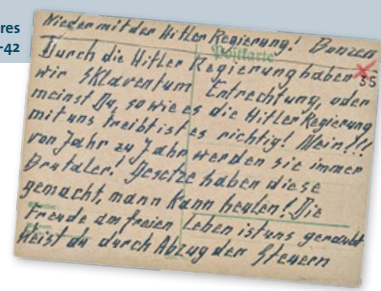 res
-42
Nieder mit der Hitler Regierung! Bonzen
Postkarte
35
Durch die Hitler Regierung haben
wir Sklaventum Entrechtung, oder
meinst Du, so wie es die Hitler Regierung
mit uns treibt ist es richtig! Nein!!!
von Jahr zu Jahr werden sie immer
Brutaler! Gesetze haben diese
gemacht, mann kann heulen! Die
Freude am freien Leben ist uns geraubt
Reist du durch Abzug der Steuern